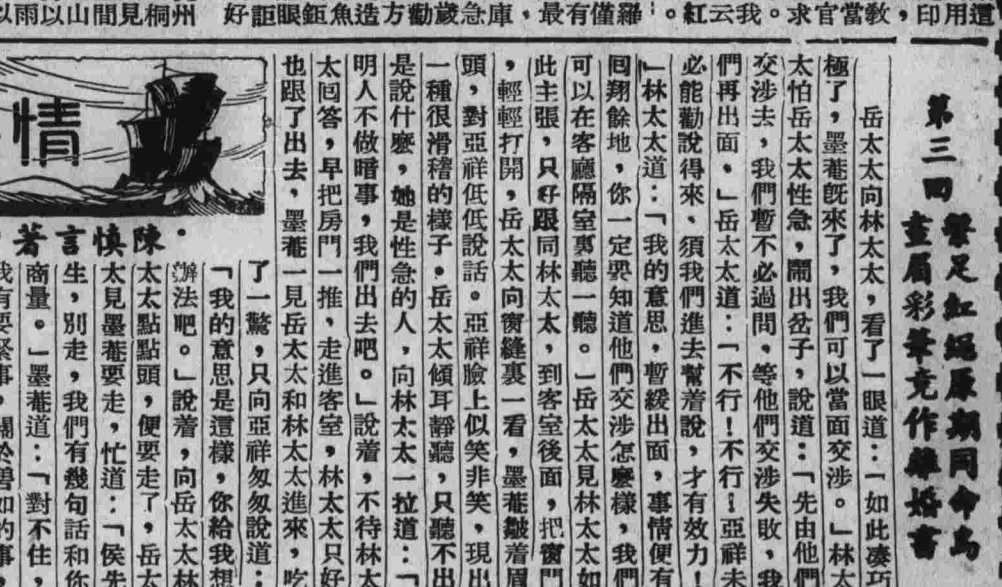 這用印，教當官求。我云紅。：羅僅有最，庫急歲勸方造魚鉅眼詎好
州桐見間山以雨以
第三回
繫足紅繩原期同命鳥
畫眉彩筆竟作離婚書
岳太太向林太太，看了一眼道：「如此凑巧
極了，墨菴旣來了，我們可以當面交涉。」林太
太怕岳太太性急，鬧出岔子，說道：「先由他們
交涉去，我們暫不必過問，等他們交涉失敗，我
們再出面。」岳太太道：「不行！不行！亞祥未
必能勸說得來、須我們進去幫着說，才有效力！
」林太太道：「我的意思，暫緩出面，事情便有
囘翔餘地，你一定要知道他們交涉怎麼樣，我們
可以在客廳隔室裏聽一聽。」岳太太見林太太如
此主張，只好跟同林太太，到客室後面，把窗門
，輕輕打開，岳太太向窗縫裏一看，墨菴皺着眉
頭，對亞祥低低說話。亞祥臉上似笑非笑，現出
一種很滑稽的樣子。岳太太傾耳靜聽，只聽不出
是說什麼，她是性急的人，向林太太一拉道：「
明人不做暗事，我們出去吧。」說着，不待林太
太囘答，早把房門一推，走進客室，林太太只好
也跟了出去，墨菴一見岳太太和林太太進來，吃
了一驚，只向亞祥匆匆說道：
「我的意思是這樣，你給我想
辦法吧。」說着，向岳太太林
太太點點頭，便要走了，岳太
太見墨菴要走，忙道：「侯先
生，別走，我們有幾句話和你
商量。」墨菴道：「對不住，
我有要緊事，關於碧如的事
情
陳愼言著